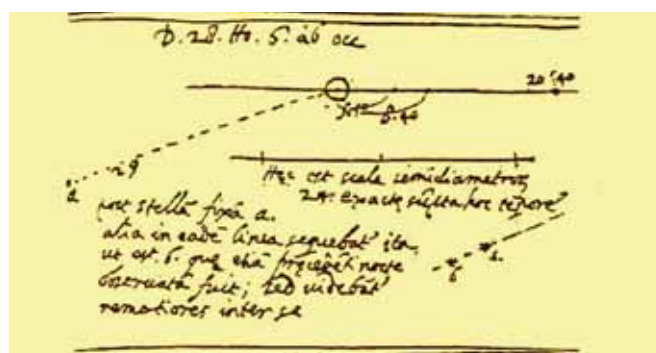 D. 28. Ho. 5. ab occ
20.40
8.40
a 29
Hec est scala semidiametros
24. exacte sūpta hoc tēpore
post stellā fixā a.
alia in eadē linea sequebat' ita
ut est. b. que etiā precedēti nocte
observata fuit; sed videbat'
remotiores inter se
b a.